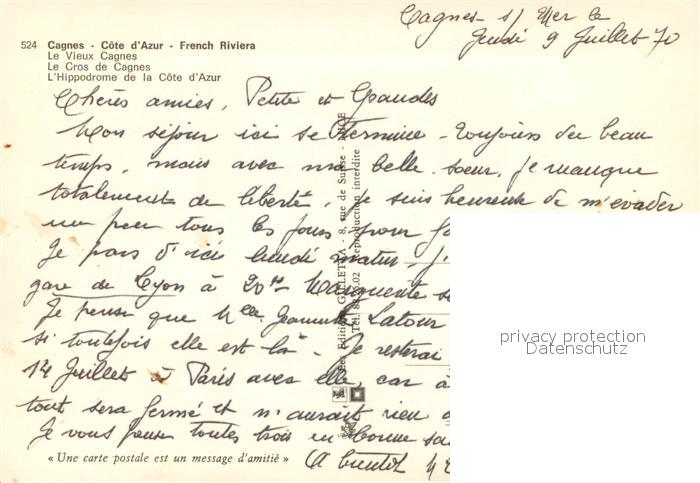 Cagnes s/ Mer le
Jeudi 9 Juillet 70
524 Cagnes - Côte d'Azur - French Riviera
Le Vieux Cagnes
Le Cros de Cagnes
L'Hippodrome de la Côte d'Azur
Chères amies, Petite et Grandes
Mon séjour ici se termine - Toujours du beau
temps, mais avec ma belle-soeur, je manque
totalement de liberté. Je suis heureuse de m'évader
un peu tous les jours pour
Je pars d'ici lundi matin, j'
gare de Lyon à 20h
Je pense que Mlle Jeannette Latour
si toutefois elle est là - Je resterai
14 Juillet à Paris avec elle, car à
tout sera fermé et n'aurait rien
Je vous pense toutes trois en bonne
A bientôt
« Une carte postale est un message d'amitié »
8, rue de Suisse - NICE
Reproduction interdite
privacy protection
Datenschutz